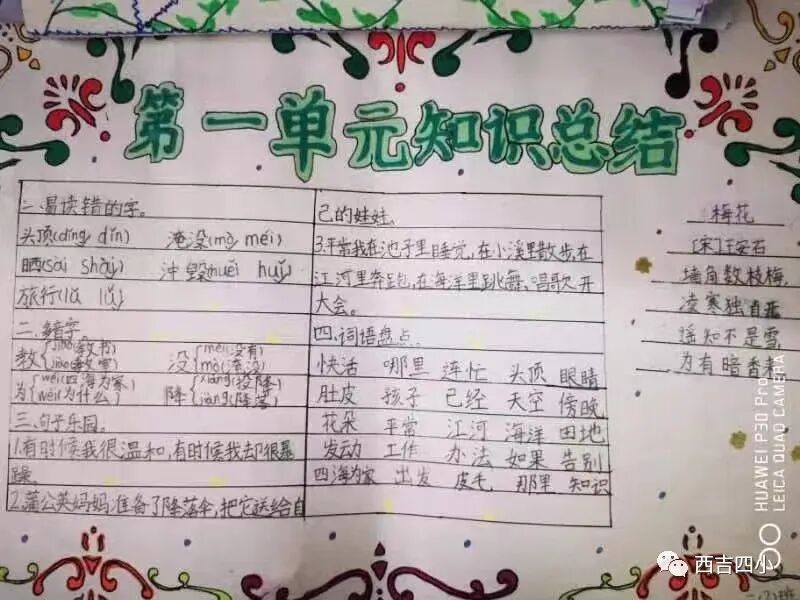 第一单元知识总结
一.易读错的字。
头顶(dǐng dǐn) 淹没(mò méi)
晒(sài shài) 冲毁(huěi huǐ)
旅行(lǚ lǚ)
二.多音字
教{jiāo(教书) jiào(教室) 没{méi(没有) mò(淹没)
为{wéi(四海为家) wèi(为什么) 降{xiáng(投降) jiàng(降落)
三.句子乐园。
1.有时候我很温和,有时候我却很暴
躁。
2.蒲公英妈妈准备了降落伞,把它送给自
己的娃娃、
3.平常我在池子里睡觉,在小溪里散步,在
江河里奔跑,在海洋里跳舞、唱歌、开
大会。
四.词语盘点
快活 哪里 连忙 头顶 眼睛
肚皮 孩子 已经 天空 傍晚
花朵 平常 江河 海洋 田地
发动 工作 办法 如果 告别
四海为家 出发 皮毛 那里 知识
梅花
[宋]王安石
墙角数枝梅,
凌寒独自开
遥知不是雪
为有暗香来
HUAWEI P30 Pro
LEICA QUAD CAMERA
西吉四小